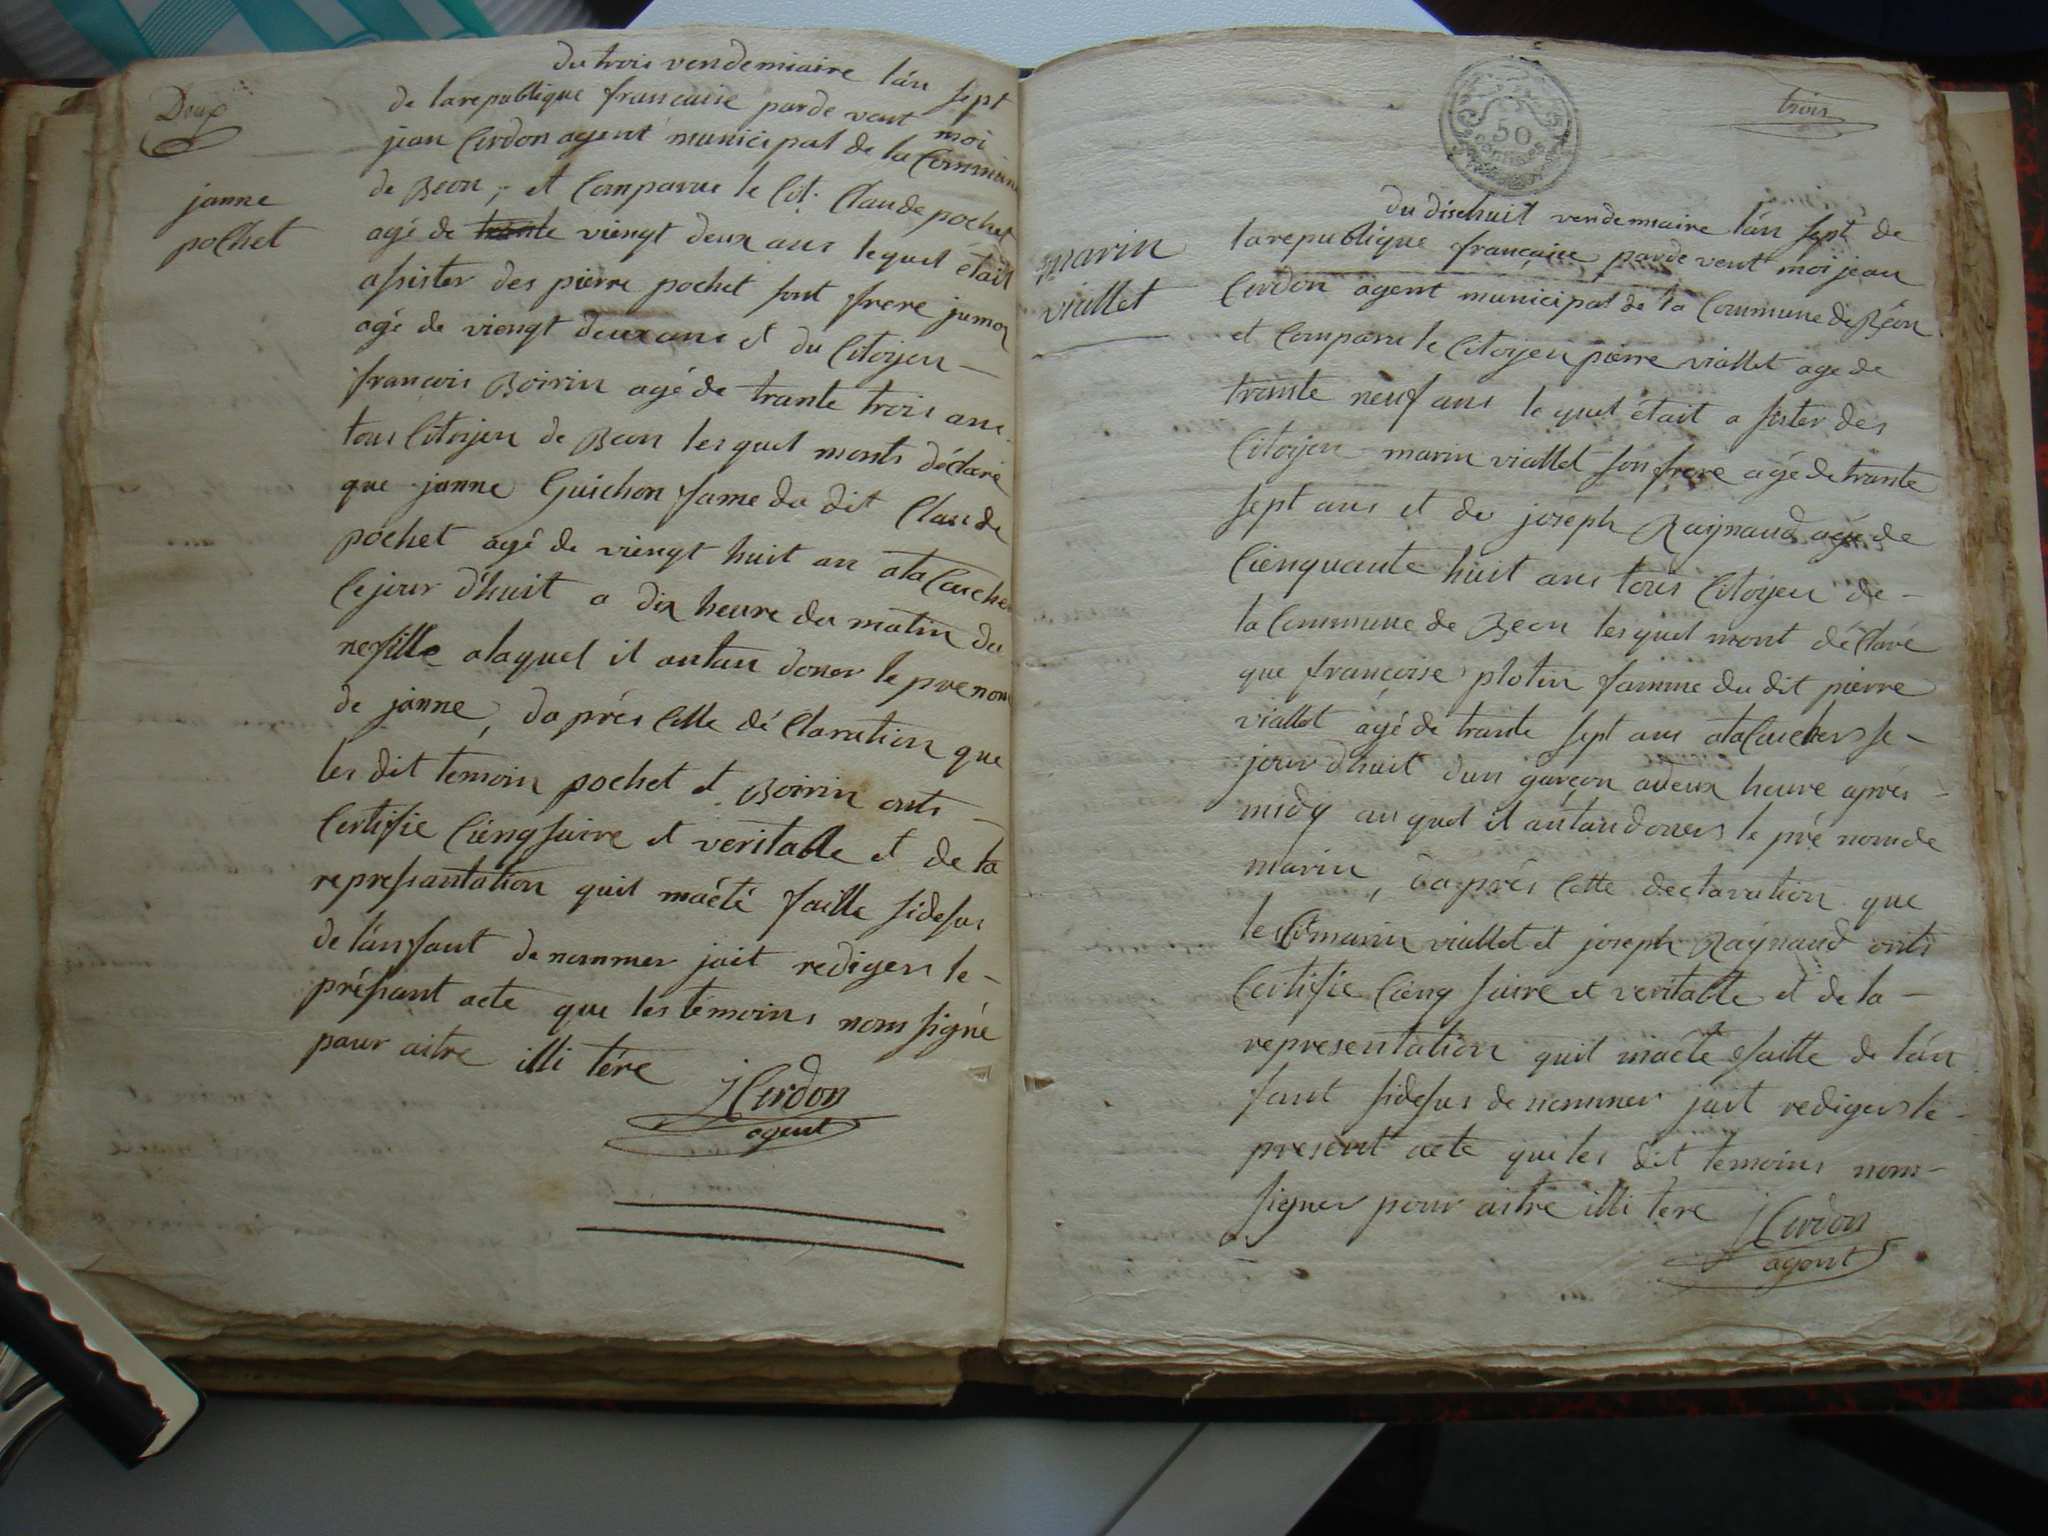 Deux
janne
pochet
du trois vendemiaire l'an sept
de la republique francaise parde vent moi
jean Cerdon agent municipal de la Commune
de Beon, et Comparue le Cit. Claude pochet
agé de trante viengt deux ans lequel était
assister des pierre pochet sont frere jumos
agé de viengt deux ans et du Citoijen
francois Boirin agé de trante trois ans
tous Citoijen de Beon lesquel monts déclaré
que janne Guichon fame du dit Claude
pochet agé de viengt huit an ata Caucher
Cejour d'huit a dix heure du matin du
ne fille ataquel il antan doner le prenom
de janne, daprés Cette déClaration que
les dit temoin pochet et Boirin onts
Certifie Cieng faire et veritable et de la
repressantation quil maété faitte sidesus
de l'ansfant denommer jait redigers le
préssant acte que les temoins nom signé
pour aitre illi tére
J Cerdon
agent
50
centimes
trois
marin
viallet
du disehuit vendemiaire l'an sept de
la republique francaise parde vent moi jean
Cerdon agent municipal de la Commune de Béon
et Comparu le Citoijen pierre viallet age de
trante neuf ans le quel était a sister des
Citoijen marin viallet son frere agé de trante
sept ans et de joseph Raynaud agé de
Cienquante huit ans tous Citoijen de
la Commune de Beon lesquel mont déClaré
que françoise plotin famme du dit pierre
viallet agé de trante sept ans ata Cauchers se
jour d'huit dun garçon adeux heure aprés
midy auquel il antan doners le pré nom de
marin, daprés Cette declaration que
les Cit marin viallet et joseph Raynaud onts
Certifie Cieng faire et veritable et de la
representation quil maété faitte de l'an
fant sidesus denommer jait redigers le
present acte que les dit temoins nom
signer pour aitre illi tére
J Cerdon
agent